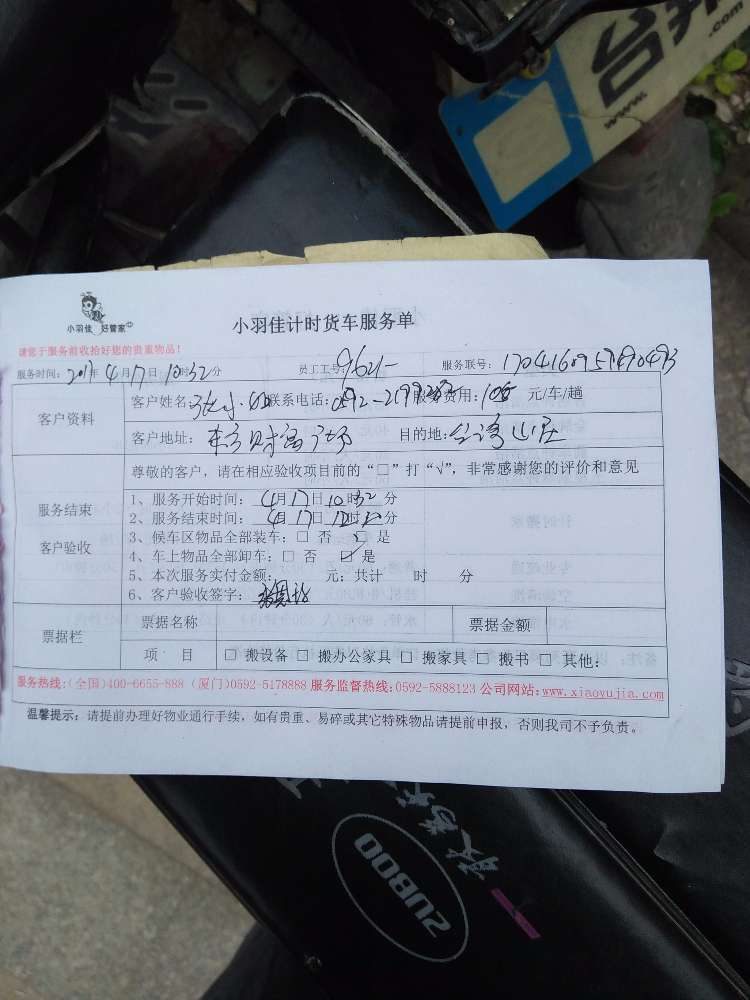 台
www.
.com
小羽佳 好管家
小羽佳计时货车服务单
请您于服务前收拾好您的贵重物品!
服务时间: 2017年 4月17日10时32分 员工工号: 服务联号:
客户资料
客户姓名: 联系电话: 服务费用: 元/车/趟
客户地址: 财富广场 目的地: 山庄
服务结束
客户验收
尊敬的客户,请在相应验收项目前的“□”打“√”,非常感谢您的评价和意见
1、服务开始时间: 4月17日10时32分
2、服务结束时间: 4月17日12时 分
3、候车区物品全部装车: □ 否 □ 是
4、车上物品全部卸车: □ 否 □ 是
5、本次服务实付金额: 元: 共计 时 分
6、客户验收签字:
票据栏
票据名称 票据金额
项 目 □ 搬设备 □ 搬办公家具 □ 搬家具 □ 搬书 □ 其他:
服务热线:(全国)400-6655-888 (厦门)0592-5178888 服务监督热线:0592-5888123 公司网站:www.xiaoyujia.com
温馨提示: 请提前办理好物业通行手续,如有贵重、易碎或其它特殊物品请提前申报,否则我司不予负责。
ZUBOO